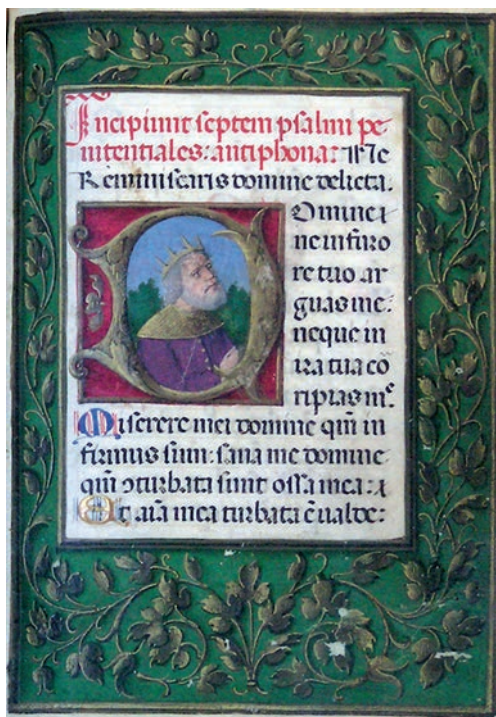 Incipiunt septem psalmi pe
nitentiales: antiphona: Ne
Reminiscaris domine delicta.
DOmine
ne in furo
re tuo ar
guas me:
neque in
ira tua cõ
ripias me.
Miserere mei domine qm̃ in
firmus sum: sana me domine
qm̃ ↄturbata sunt ossa mea:
Et aĩa mea turbata ẽ valde: